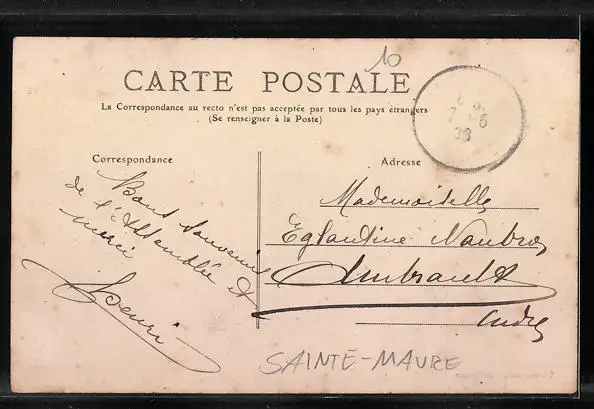 10
CARTE POSTALE
La Correspondance au recto n'est pas acceptée par tous les pays étrangers
(Se renseigner à la Poste)
Correspondance
Adresse
Bons souvenirs
de l'Assemblée et
merci
Henri
Mademoiselle
Eglantine
Ambrault
Indre
SAINTE-MAURE